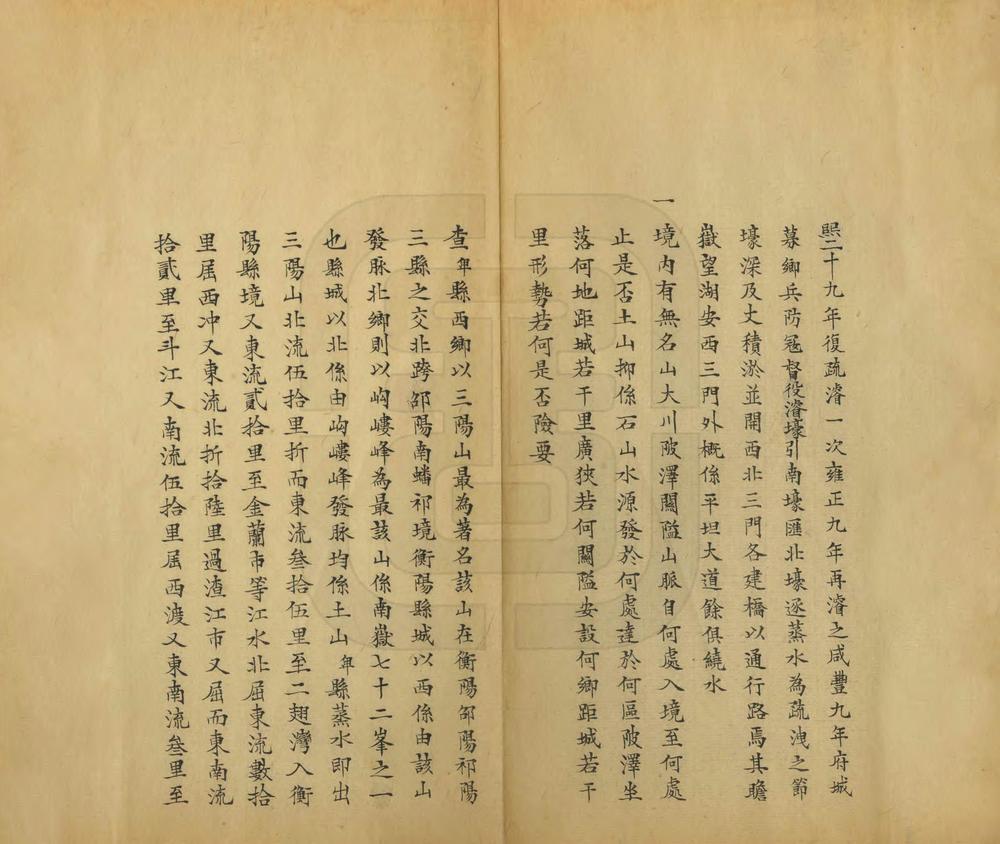 熙二十九年復疏濬一次雍正九年再濬之咸豐九年府城
募鄉兵防冦督役濬壕引南壕匯北壕逐蒸水為疏洩之節
壕深及丈積淤並開西北三門各建橋以通行路焉其瞻
嶽望湖安西三門外概係平坦大道餘俱繞水
一
境內有無名山大川陂澤關隘山脈自何處入境至何處
止是否土山抑係石山水源發於何處達於何區陂澤坐
落何地距城若干里廣狹若何關隘安設何鄉距城若干
里形勢若何是否險要
查卑縣西鄉以三陽山最為著名該山在衡陽邵陽祁陽
三縣之交北跨邵陽南蟠祁境衡陽縣城以西係由該山
發脈北鄉則以岣嶁峰為最該山係南嶽七十二峯之一
也縣城以北係由岣嶁峰發脈均係土山卑縣蒸水即出
三陽山北流伍拾里折而東流叁拾伍里至二翅灣入衡
陽縣境又東流貳拾里至金蘭市等江水北屈東流數拾
里屈西冲又東流北折拾陸里過渣江市又屈而東南流
拾貳里至斗江又南流伍拾里屈西渡又東南流叁里至